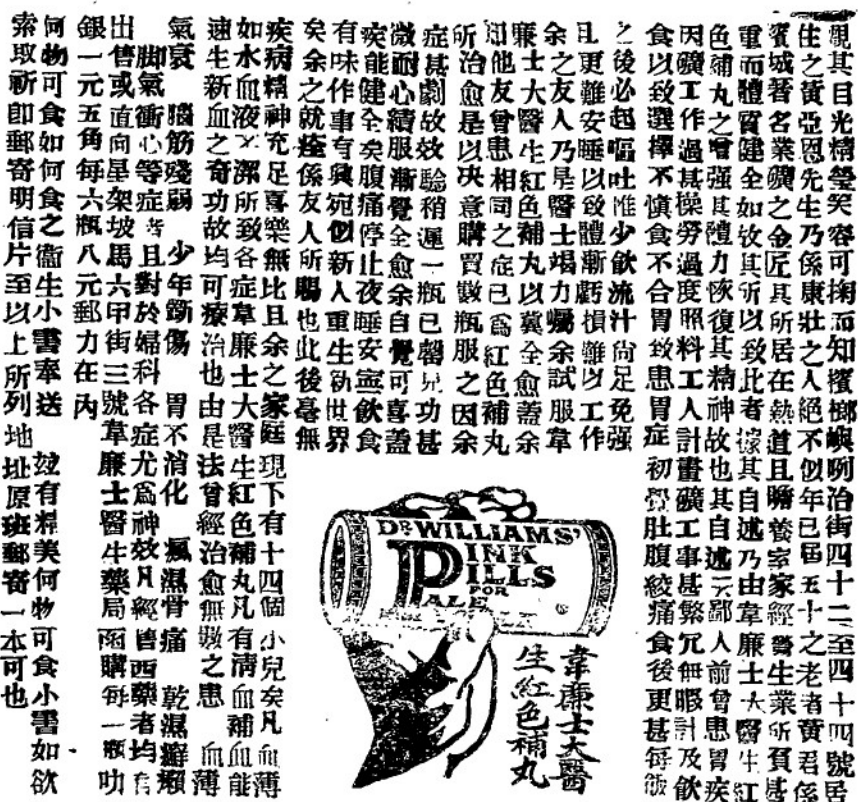 觀其目光精瑩笑容可掬而知檳榔嶼咧治街四十二至四十四號居
住之黃亞恩先生乃係康壯之人絕不似年已屆五十之老者黃君係
檳城著名業礦之金匠其所居在熱道且贍養室家經營生業所負甚
重而體質健全如故其所以致此者據其自述乃由韋廉士大醫生紅
色補丸之增强其體力恢復其精神故也其自述云鄙人前曾患胃疾
因礦工作過甚操勞過度照料工人計畫礦工事甚繁冗無暇計及飲
食以致選擇不慎食不合胃致患胃症初覺肚腹絞痛食後更甚每飯
之後必起嘔吐惟少飲流汁尚足免强
且更難安睡以致體漸虧損難以工作
余之友人乃是醫士竭力囑余試服韋
廉士大醫生紅色補丸以冀全愈蓋余
知他友曾患相同之症已爲紅色補丸
所治愈是以决意購買數瓶服之因余
症甚劇故效驗稍遲一瓶已罄見功甚
微耐心續服漸覺全愈余自覺可喜蓋
疾能健全矣腹痛停止夜睡安寧飲食
有味作事有興宛似新人重生斯世界
矣余之就痊係友人所賜也此後毫無
疾病精神充足喜樂無比且余之家庭現下有十四個小兒矣凡血薄
如水血液欠潔所致各症韋廉士大醫生紅色補丸凡有清血補血能
速生新血之奇功故均可療治也由是法曾經治愈無數之患 血薄
氣衰 腦筋殘弱 少年斵傷 胃不消化 瘋濕骨痛 乾濕癬癩
脚氣衝心等症者且對於婦科各症尤爲神效凡經售西藥者均有
出售或直向星架坡馬六甲街三號韋廉士醫生藥局函購每一瓶叻
銀一元五角每六瓶八元郵力在內
何物可食如何食之衞生小書奉送 玆有精美何物可食小書如欲
索取祈即郵寄明信片至以上所列地址原班郵寄一本可也
DR WILLIAMS'
PINK
PILLS
FOR
PALE
韋廉士大醫
生紅色補丸